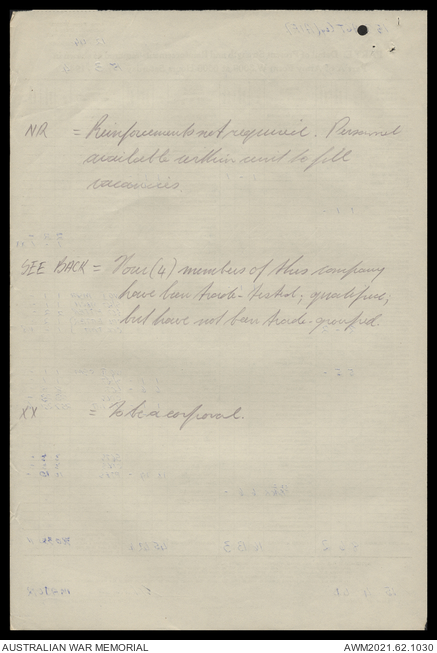 NR = Reinforcements not required. Personnel
available within unit to fill
vacancies.
SEE BACK = Four (4) members of this company
have been trade-tested, qualified,
but have not been trade-grouped.
XX = To be a corporal.
AUSTRALIAN WAR MEMORIAL
AWM2021.62.1030